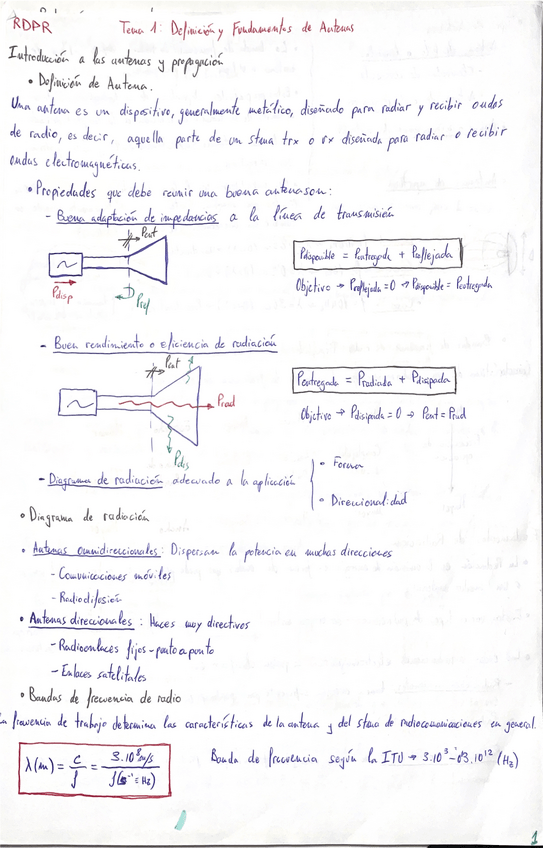 RDPR
Tema 1: Definición y Fundamentos de Antenas
Introducción a las antenas y propagación
• Definición de Antena.
Una antena es un dispositivo, generalmente metálico, diseñado para radiar y recibir ondas
de radio, es decir, aquella parte de un stema trx o rx diseñada para radiar o recibir
ondas electromagnéticas.
• Propiedades que debe reunir una buena antena son:
- Buena adaptación de impedancias a la línea de transmisión
Pent
Pdisp
Pref
Pdisponible = Pentregada + Preflejada
Objectivo → Preflejada = 0 → Pdisponible = Pentregada
- Buen rendimiento o eficiencia de radiación
Pent
Prad
Pdis
Pentregada = Pradiada + Pdisipada
Objectivo → Pdisipada = 0 → Pent = Prad
- Diagrama de radiación adecuado a la aplicación
• Forma
• Direccionalidad
• Diagrama de radiación
• Antenas omnidireccionales: Dispersan la potencia en muchas direcciones
- Comunicaciones móviles
- Radiodifusión
• Antenas direccionales: Haces muy directivos
- Radioenlaces fijos - punto a punto
- Enlaces satelitales
• Bandas de frecuencia de radio
La frecuencia de trabajo determina las características de la antena y del stema de radiocomunicaciones en general.
λ(m) = c/f = 3·10⁸ m/s / f(s⁻¹ = Hz)
Banda de frecuencia según la ITU → 3·10³ - 3·10¹² (Hz)
1